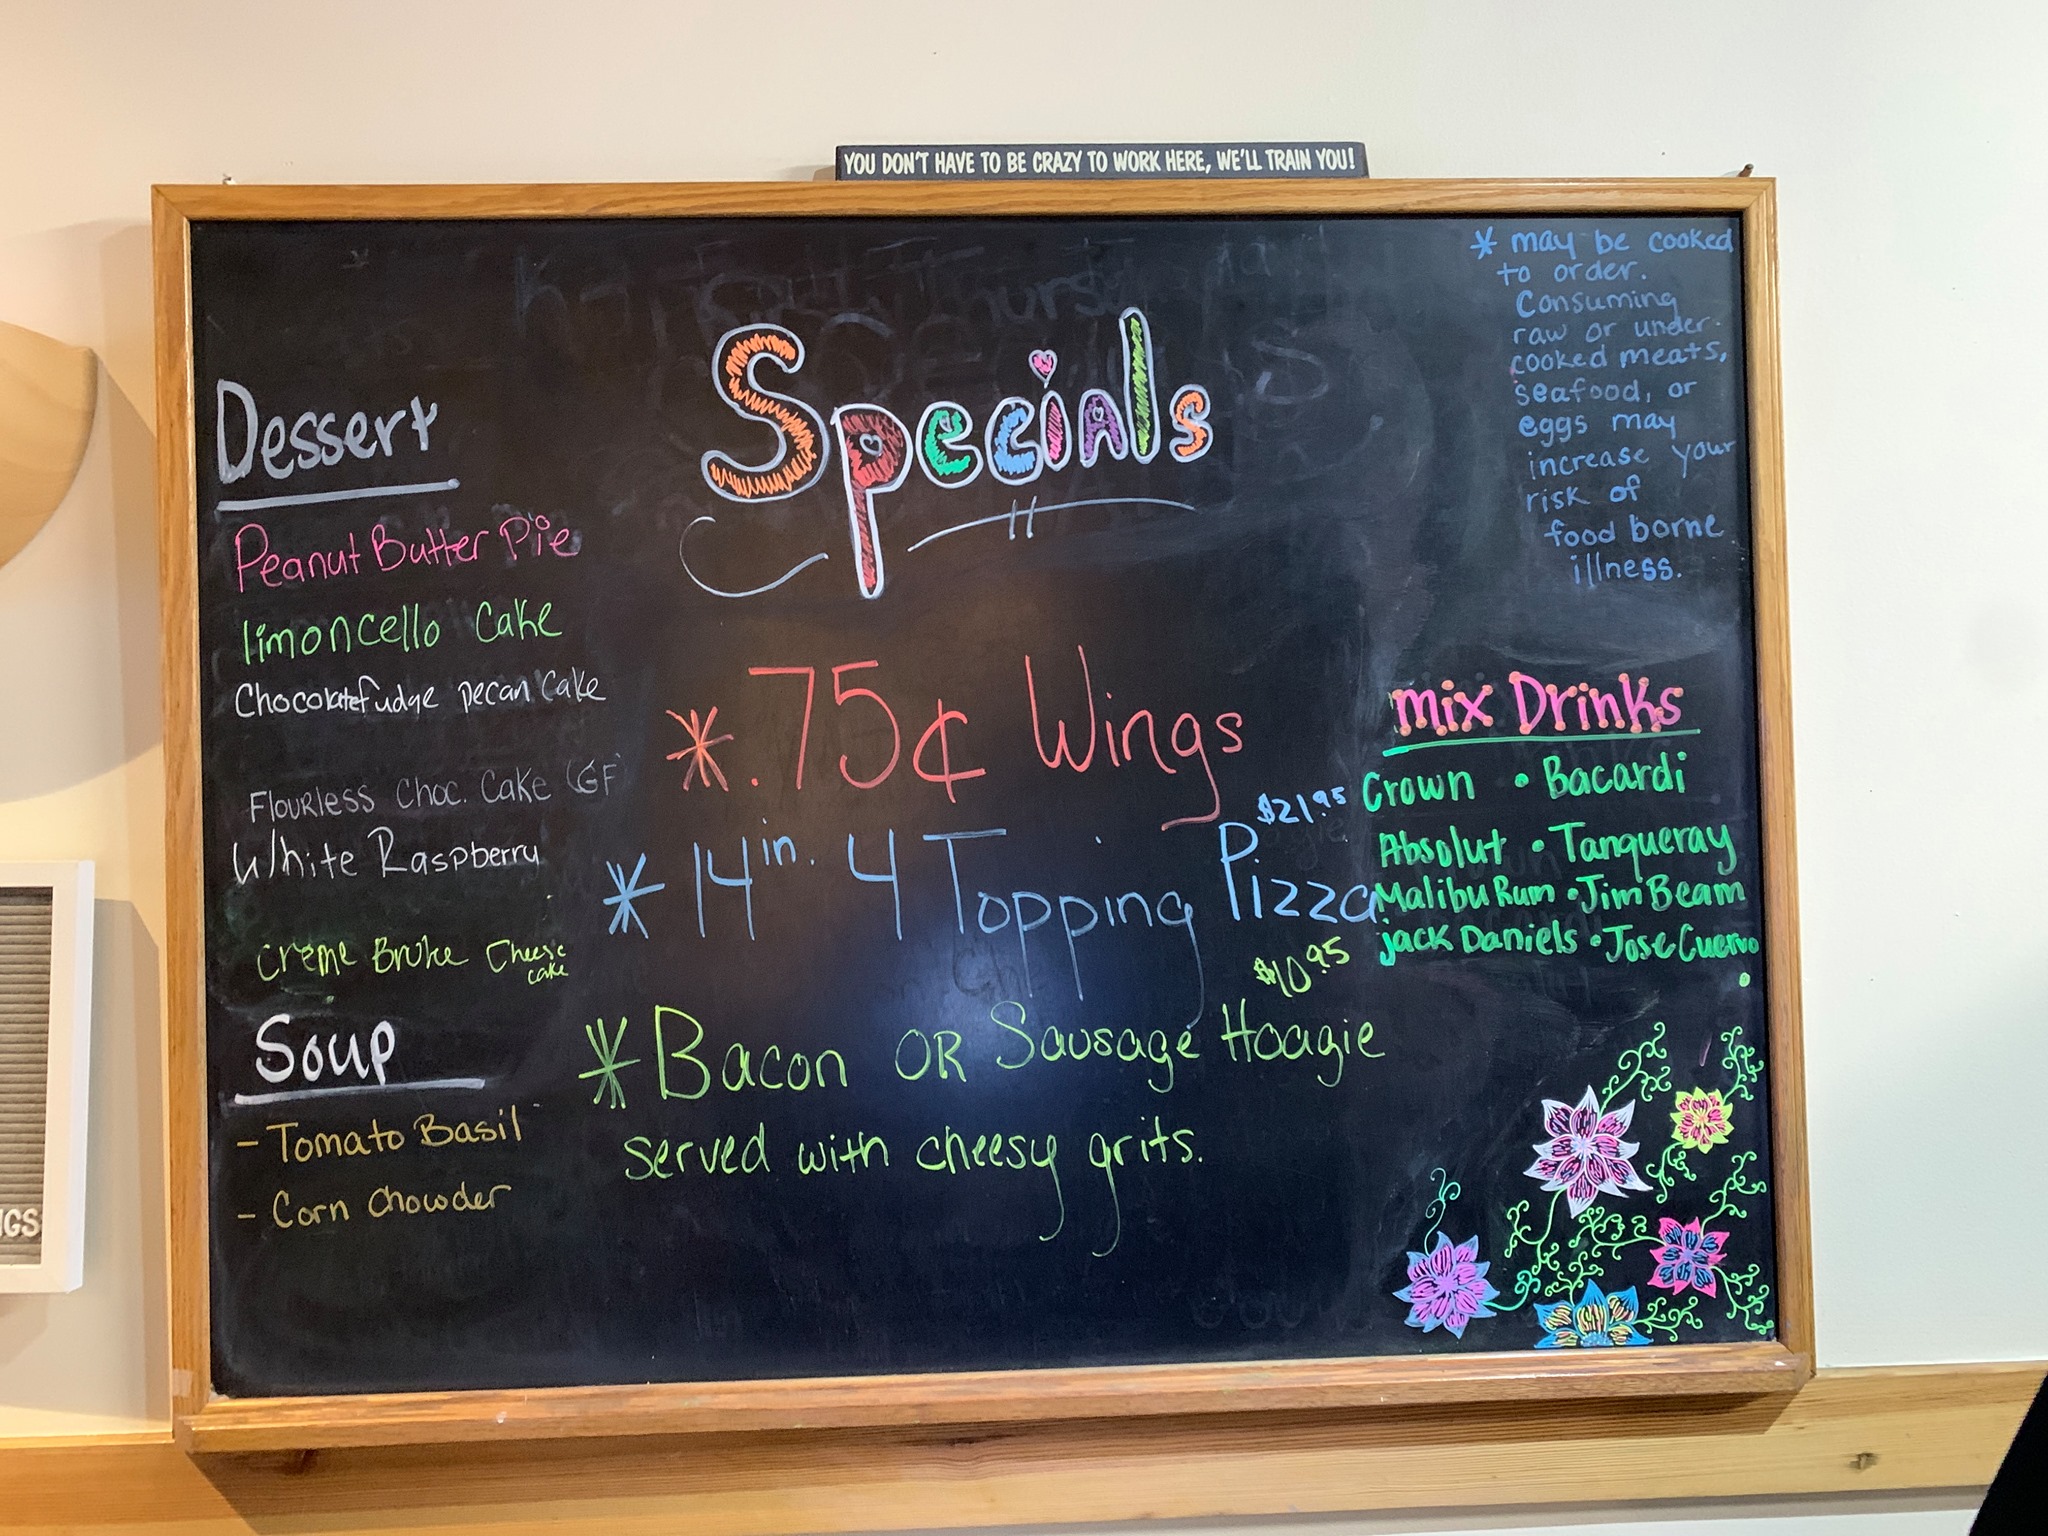 YOU DON'T HAVE TO BE CRAZY TO WORK HERE, WE'LL TRAIN YOU!
Specials
Dessert
Peanut Butter Pie
limoncello Cake
Chocolate fudge pecan Cake
Flourless Choc. Cake (GF
White Raspberry
Creme Brulee Cheese
cake
Soup
- Tomato Basil
- Corn Chowder
* .75¢ Wings
$21.95
* 14 in. 4 Topping Pizza
$10.95
* Bacon OR Sausage Hoagie
served with cheesy grits.
* may be cooked
to order.
Consuming
raw or under-
cooked meats,
seafood, or
eggs may
increase your
risk of
food borne
illness.
mix Drinks
Crown • Bacardi
Absolut • Tanqueray
Malibu Rum • Jim Beam
jack Daniels • Jose Cuervo
NGS